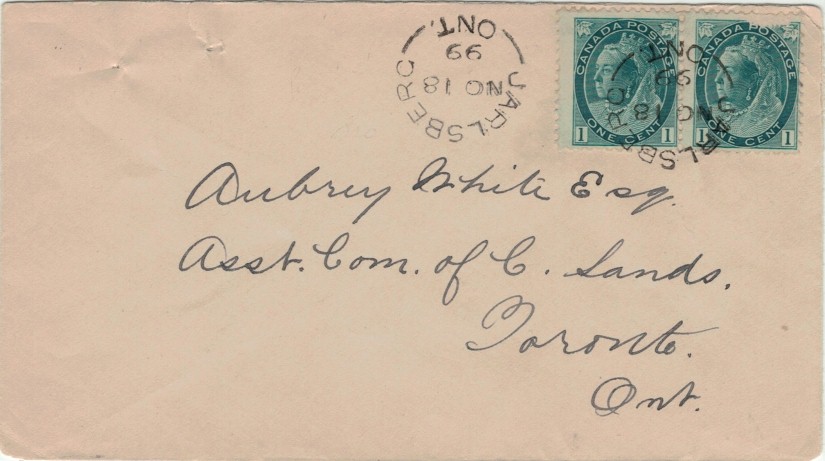 JARLSBERG
NO 18
99
ONT.
CANADA POSTAGE
ONE CENT
1 1
CANADA POSTAGE
ONE CENT
1 1
JARLSBERG
NO 18
99
ONT.
Aubrey White Esq.
Asst. Com. of C. Lands.
Toronto.
Ont.